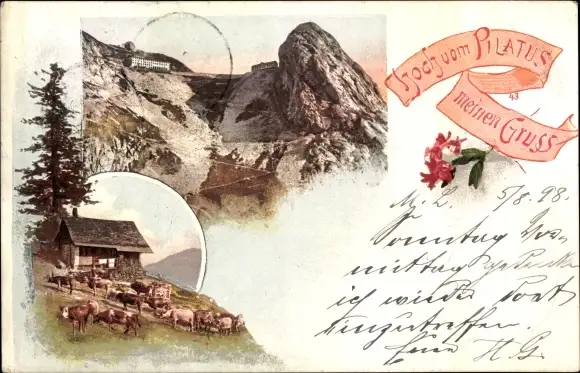 Hoch vom PILATUS
43
meinen Gruss
M. L. 5/8. 98.
Sonntag Vor-
mittag gedenke
ich wieder dort
einzutreffen.
H. G.